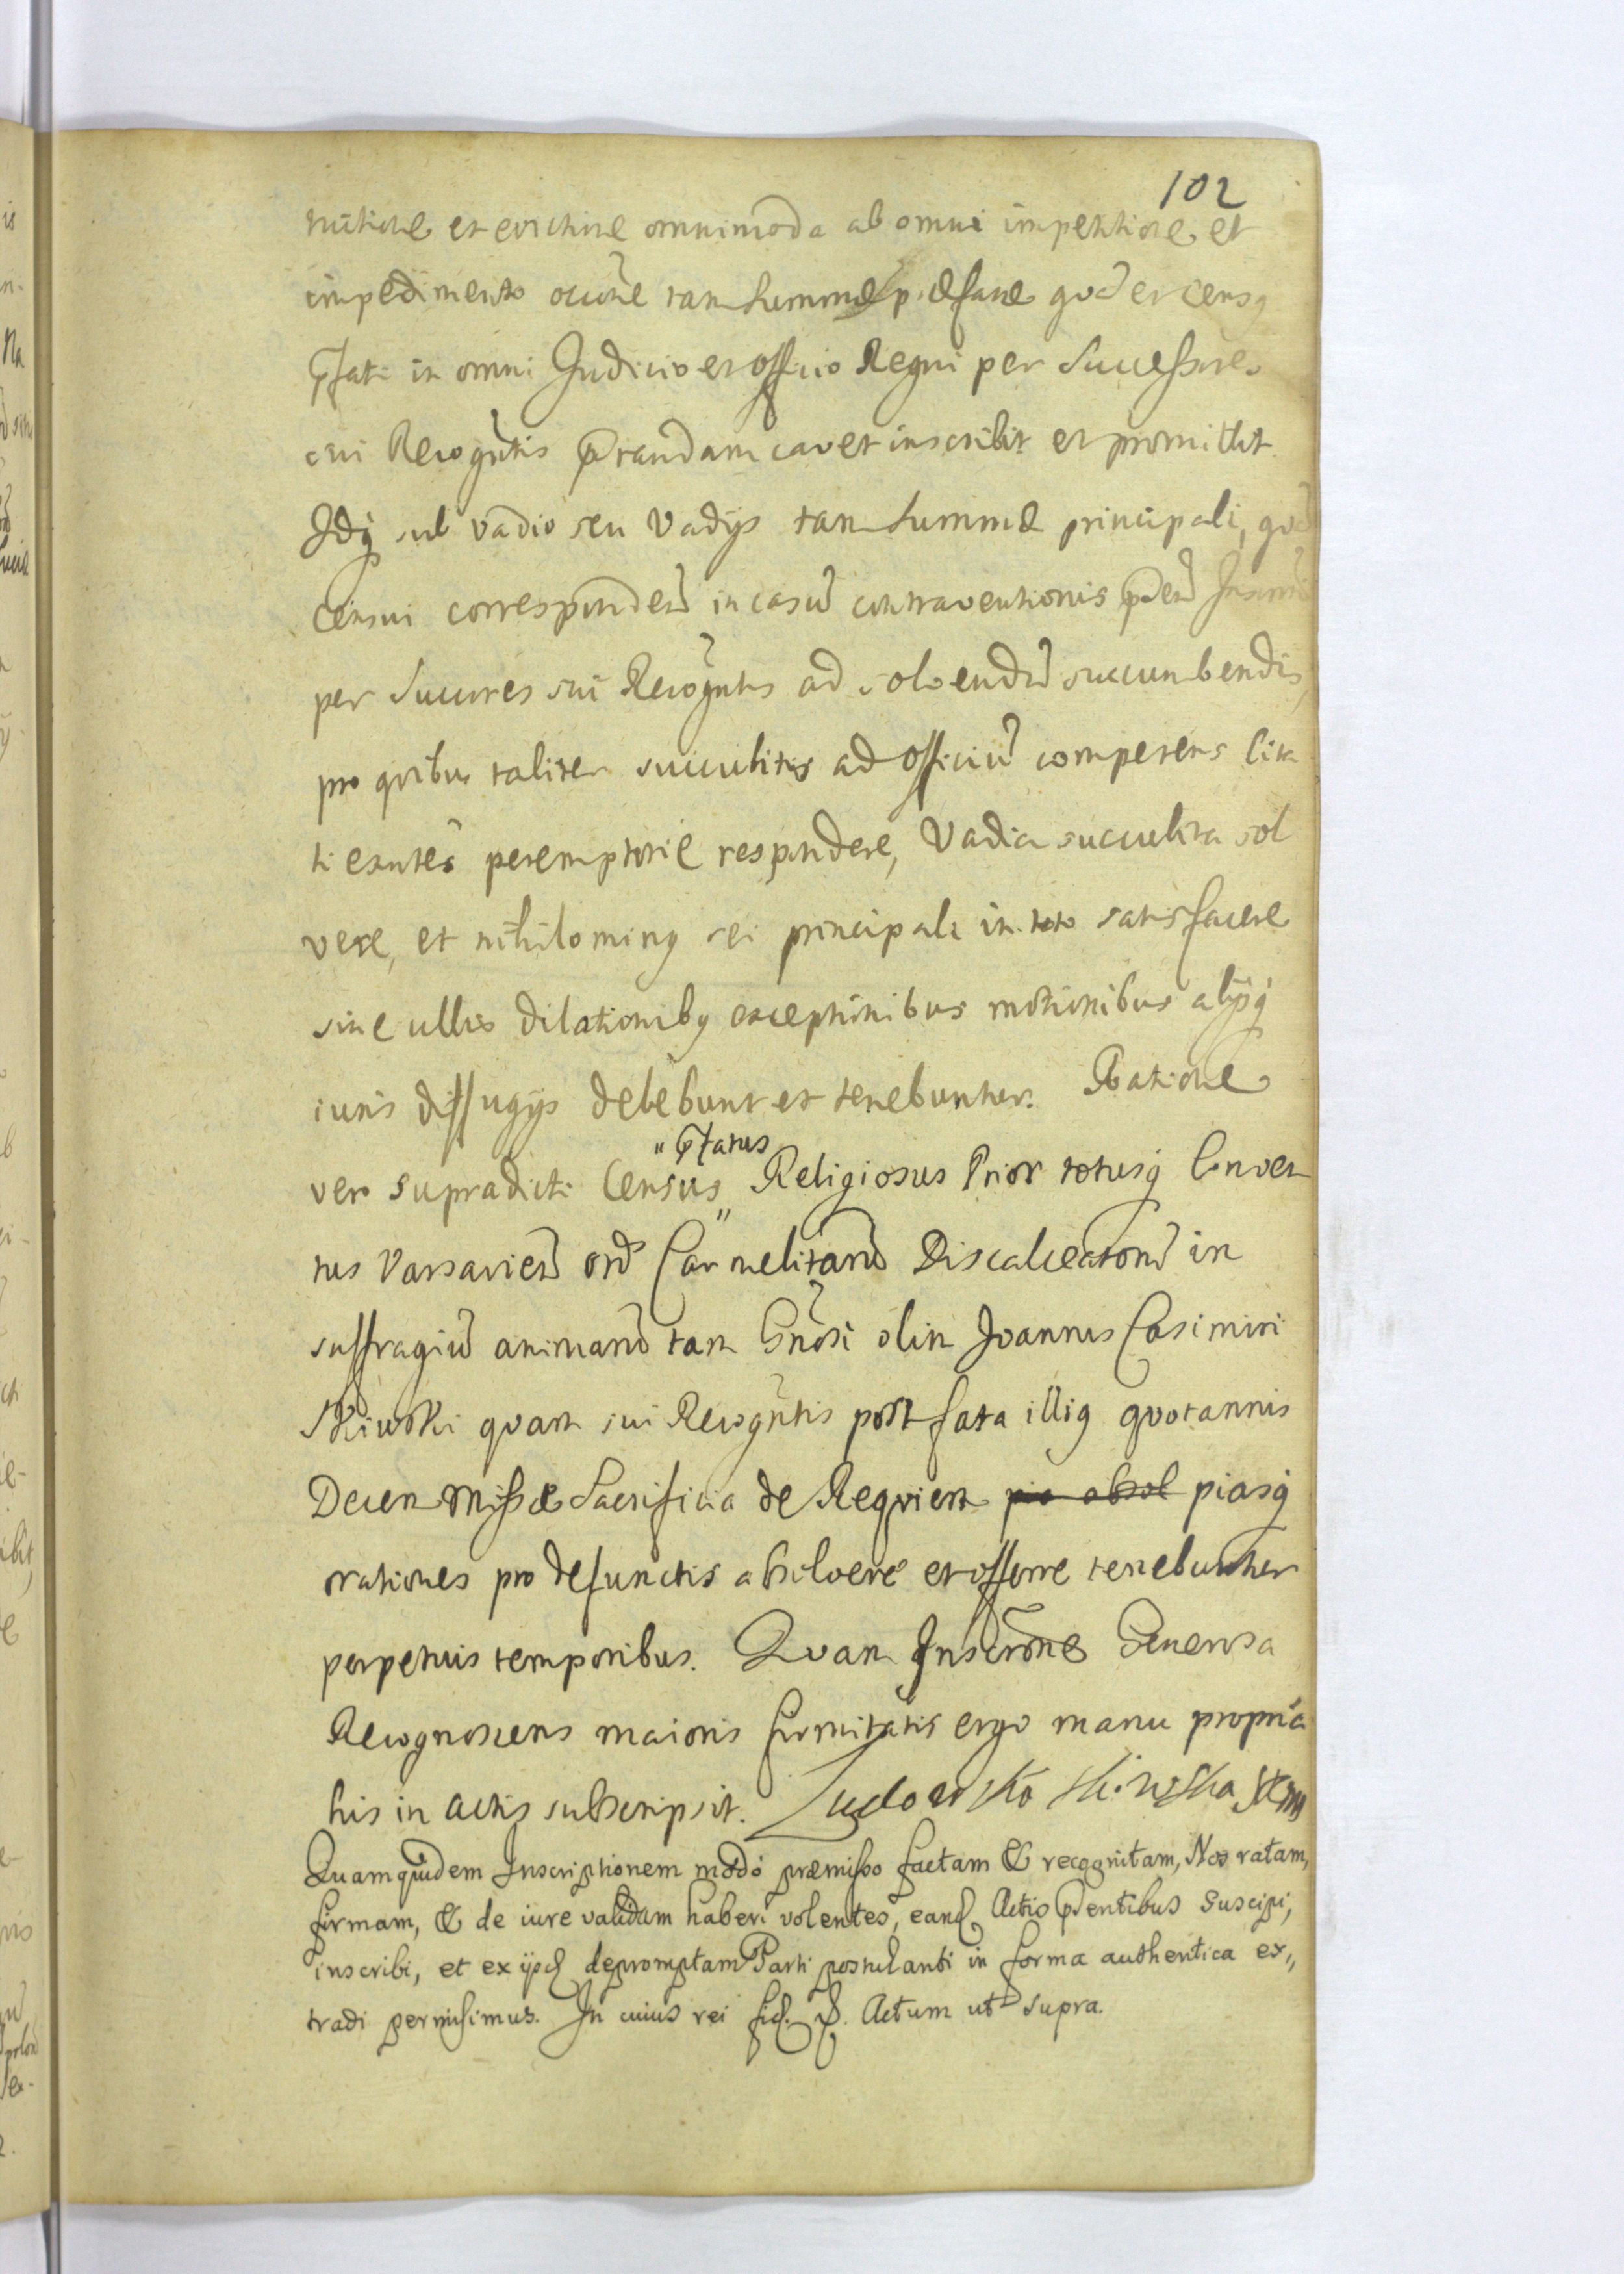 102
nitione et evictione omnimoda ab omni impetitione et
impedimento occõne tam Summæ præfatæ qvã et Censq
Pfati in omni Judicio et officio Regni per Successores
sui Recogñtis Pstandam cavet inscribit et promittit.
Idq sub vadio seu Vadijs tam Summæ principali, qvã
Censui cotrresponden̄ in casū contraventionis Psen̄
per Succores sui Recogñtis ad solvendū succumbendis,
pro qvibus taliter succubitis ad Officiū competens Cita
ti extites peremptorie respondere, Vadia succubita sol
vere, et nihilominq rei principali in toto satisfacere
sine ullis dilationibq exceptionibus motionibus alijsq
iuris diffugijs debebunt et tenebuntur. Ratione
"Pfatus
vero supradicti Census " Religiosus Prior totusq Conven
tus Varsavien̄ ord Carmelitarū Discalceatorū in
suffragiū animarū tam Gñosi olim Joannis Casimiri
Skiwski qvam sui Recogñtis post fata illiq qvotannis
Decem Missæ Sacrificia de Reqviem pia absol piasq
orationes pro defunctis absolvere et offerre tenebuntur
perpetuis temporibus. Qvam Inscrõne Generosa
Recognoscens maioris firmitatis ergo manu propria
his in Actis subscripsit. Ludowika Skiwska
Quamquidem Inscriptionem modó præmisso factam & recognitam, Nos ratam,
firmam, & de iure validam haberi volentes, eand. Actis Psentibus Suscipi,
inscribi, et ex ijsd depromptam Parti postulanti in forma authentica ex,,
tradi permisimus. In cuius rei fid. &. Actum ut supra.